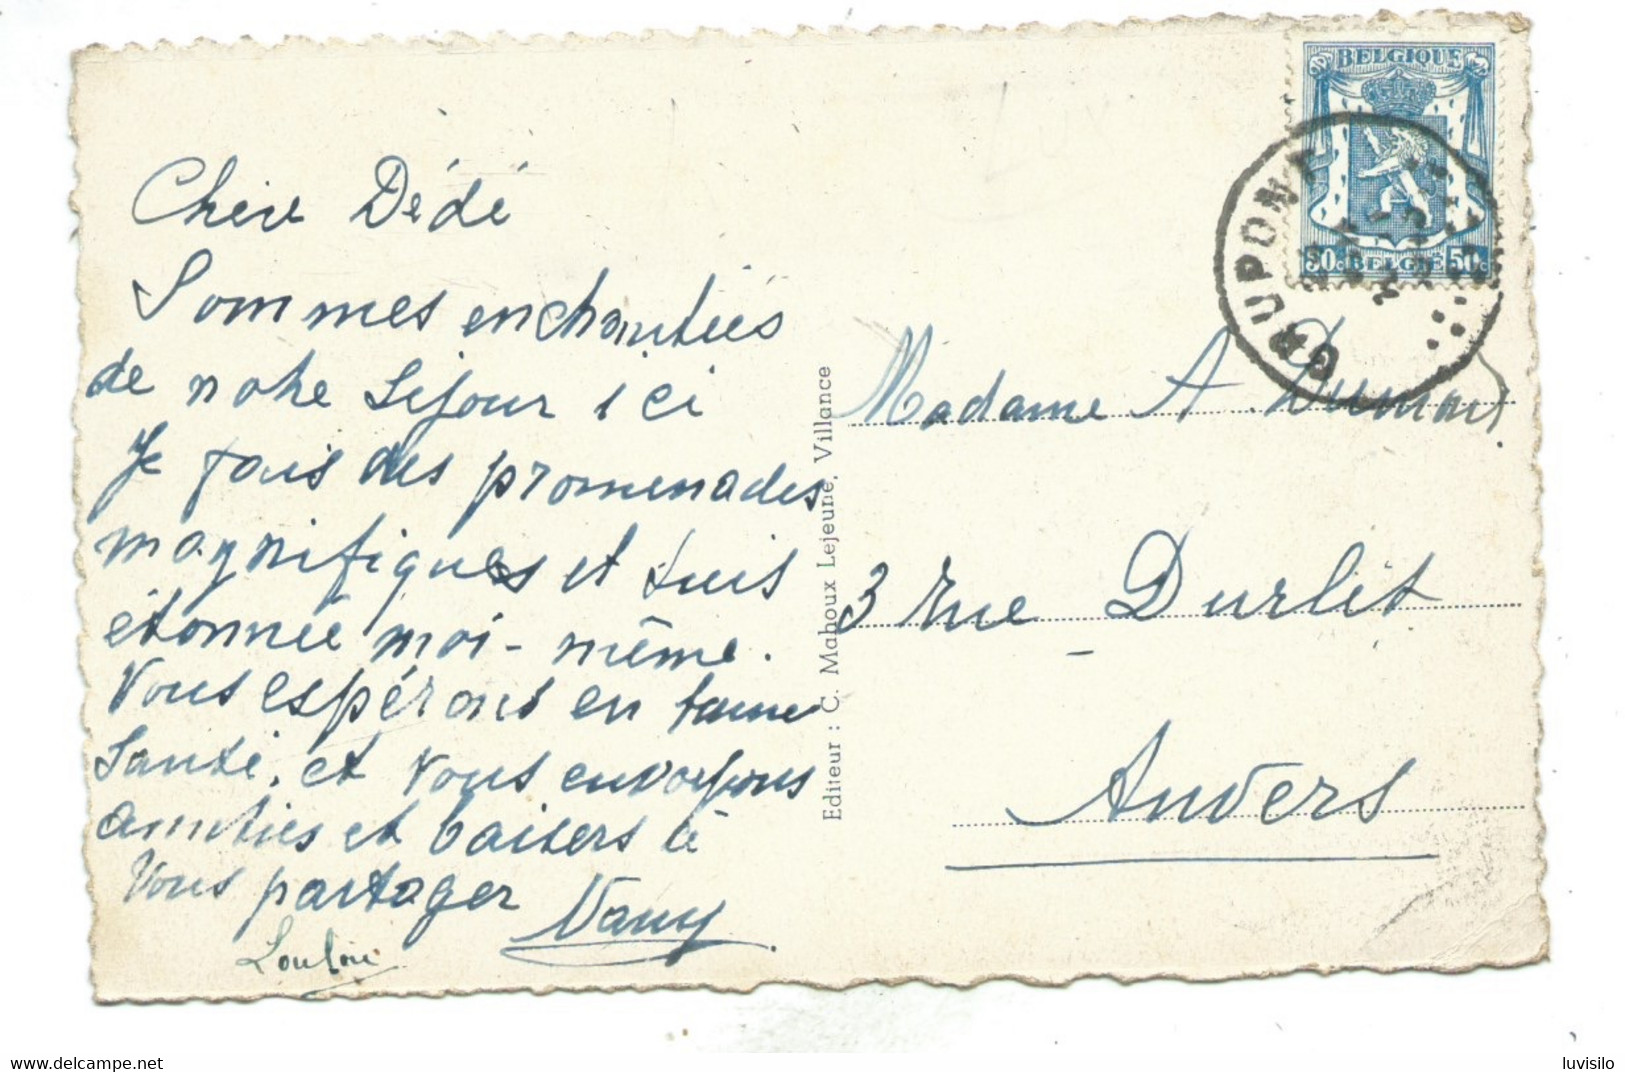 Chère Dédé
Sommes enchantées
de notre séjour ici
Je fais des promenades
magnifiques et suis
étonnée moi-même.
Vous espérons en bonne
Santé, et vous envoyons
amitiés et baisers à
vous partager
Loulou
BELGIQUE
50c BELGIE 50c
GRUPONT
Madame A Dumont
3 rue Durlet
Anvers
Editeur : C. Mahoux Lejeune, Villance
www.delcampe.net
luvisilo